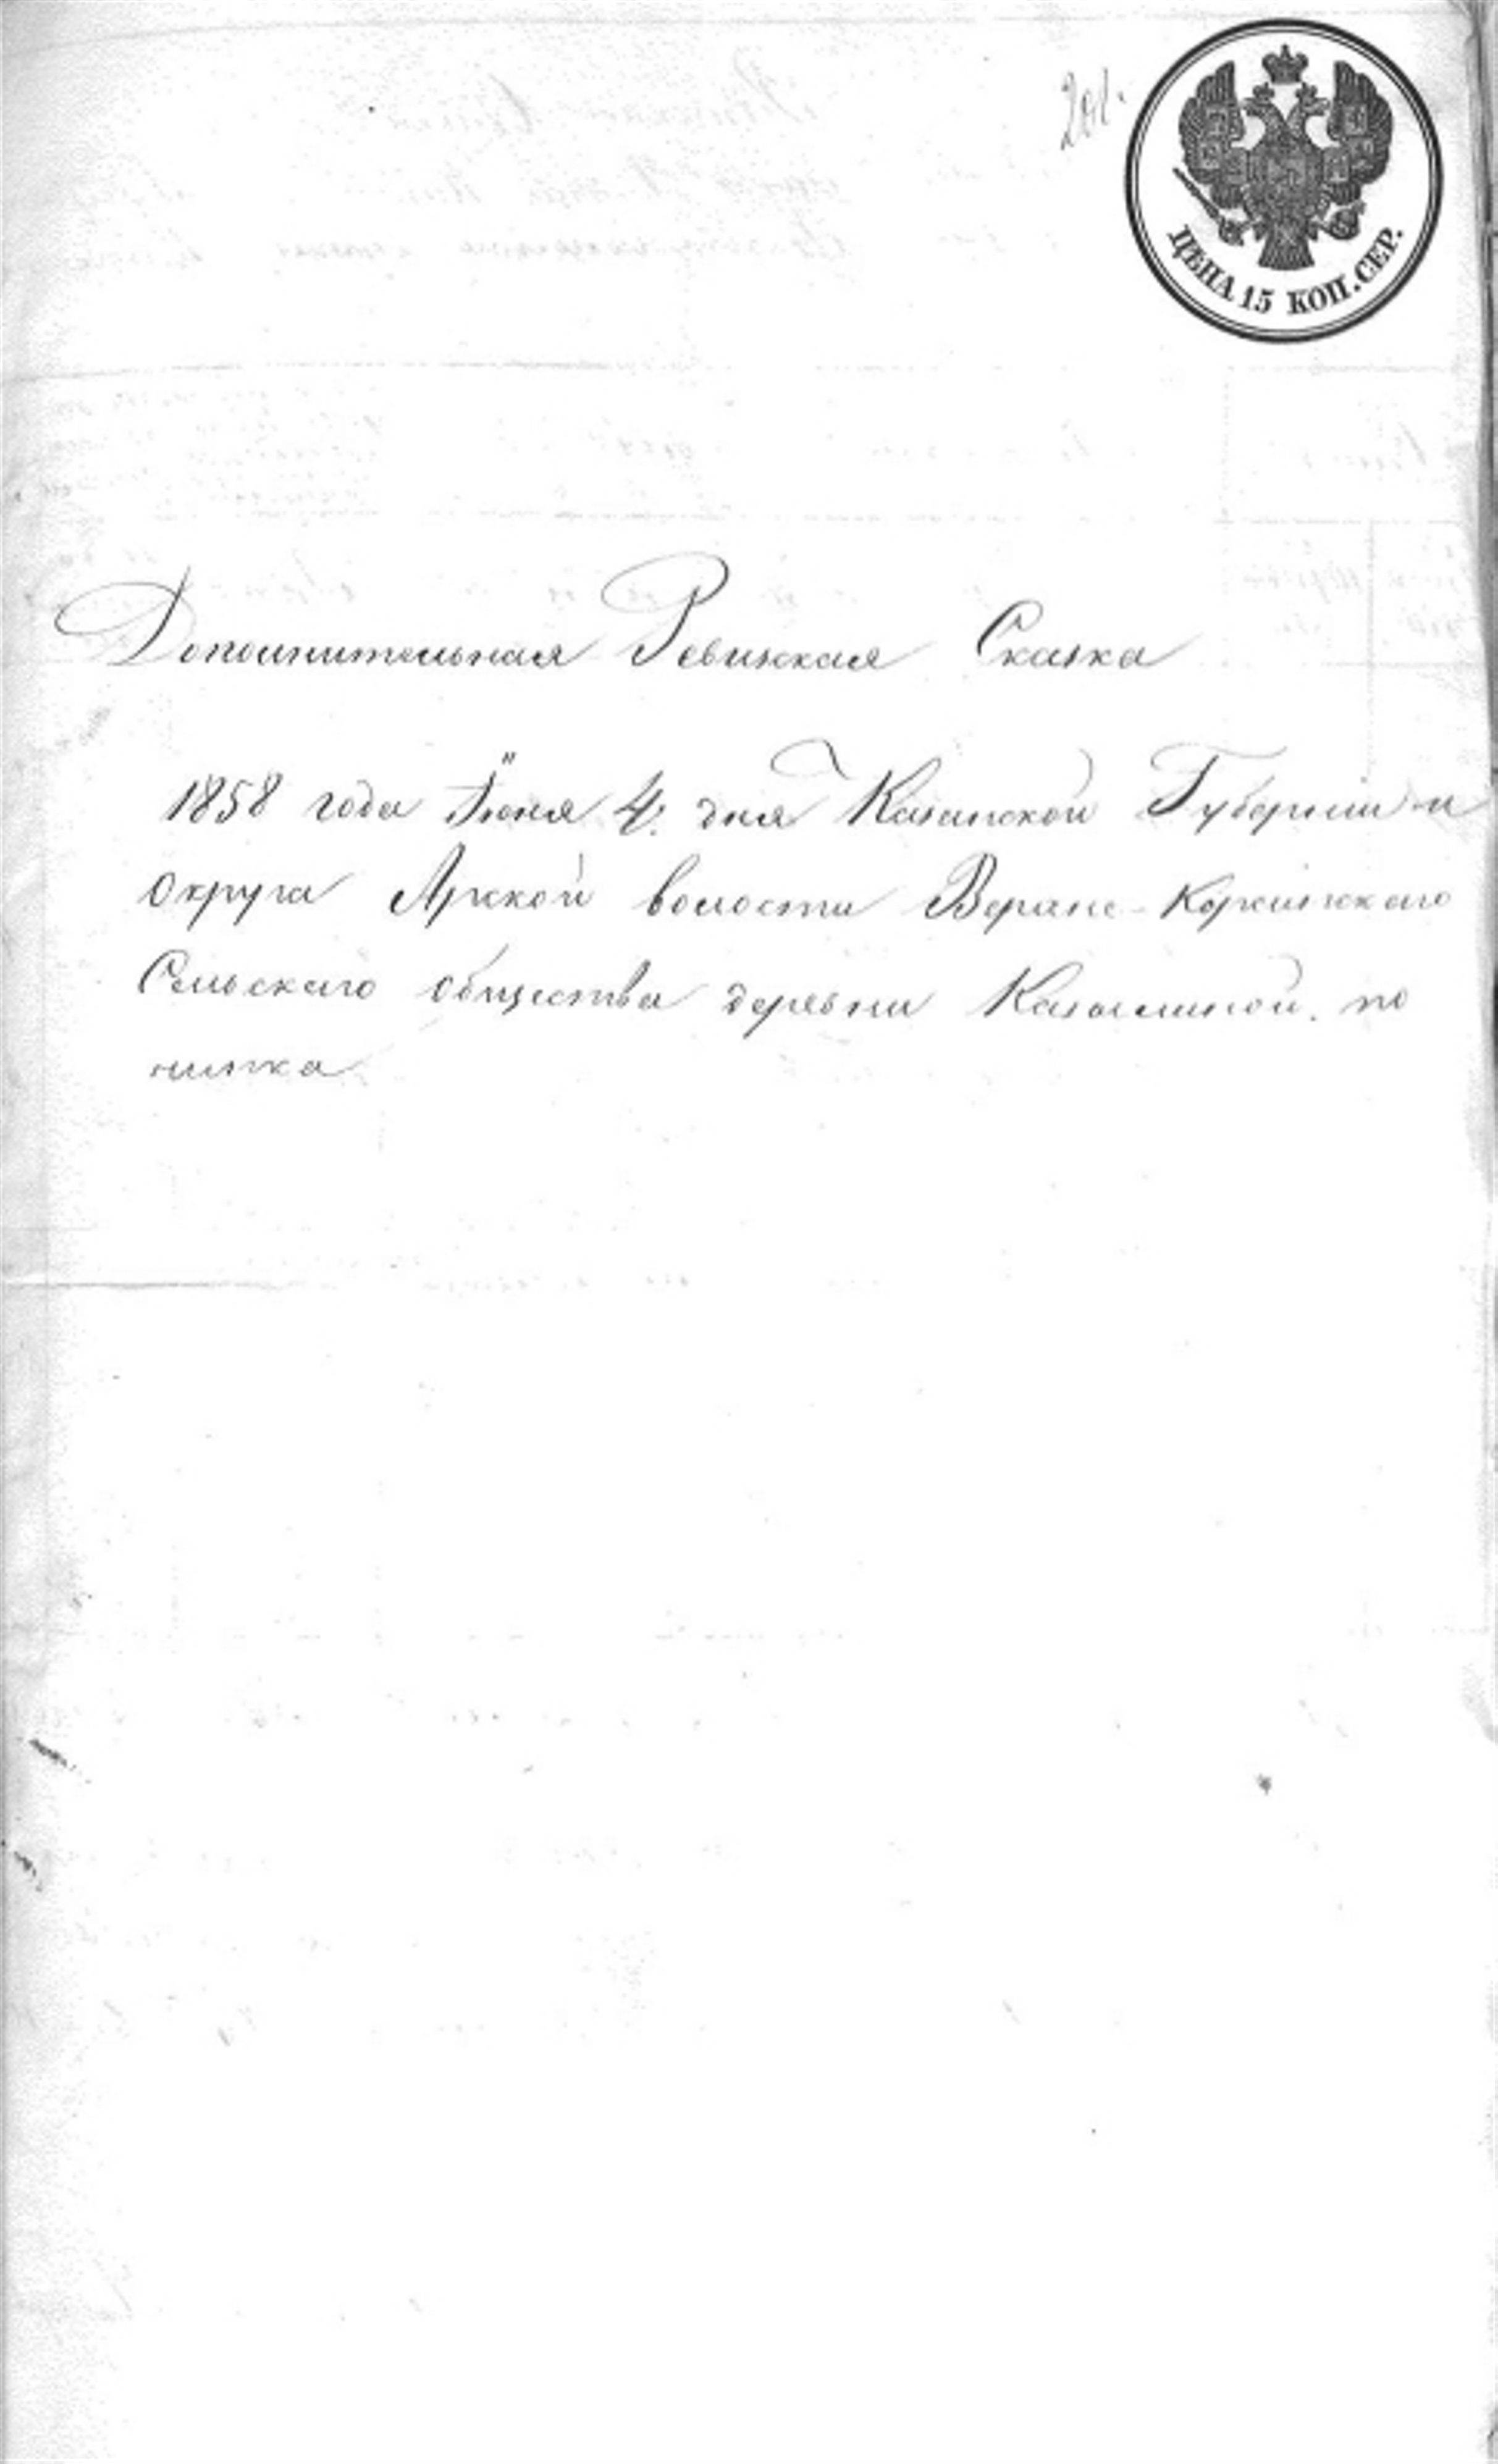 201.
ЦѢНА 15 КОП. СЕР.
Дополнительная Ревизская Сказка
1858 года Iюня 4. дня Казанской Губернiи и
Округа Арской волости Верхне-Корсинскаго
Сельскаго Общества деревни Казылиной. по
чинка